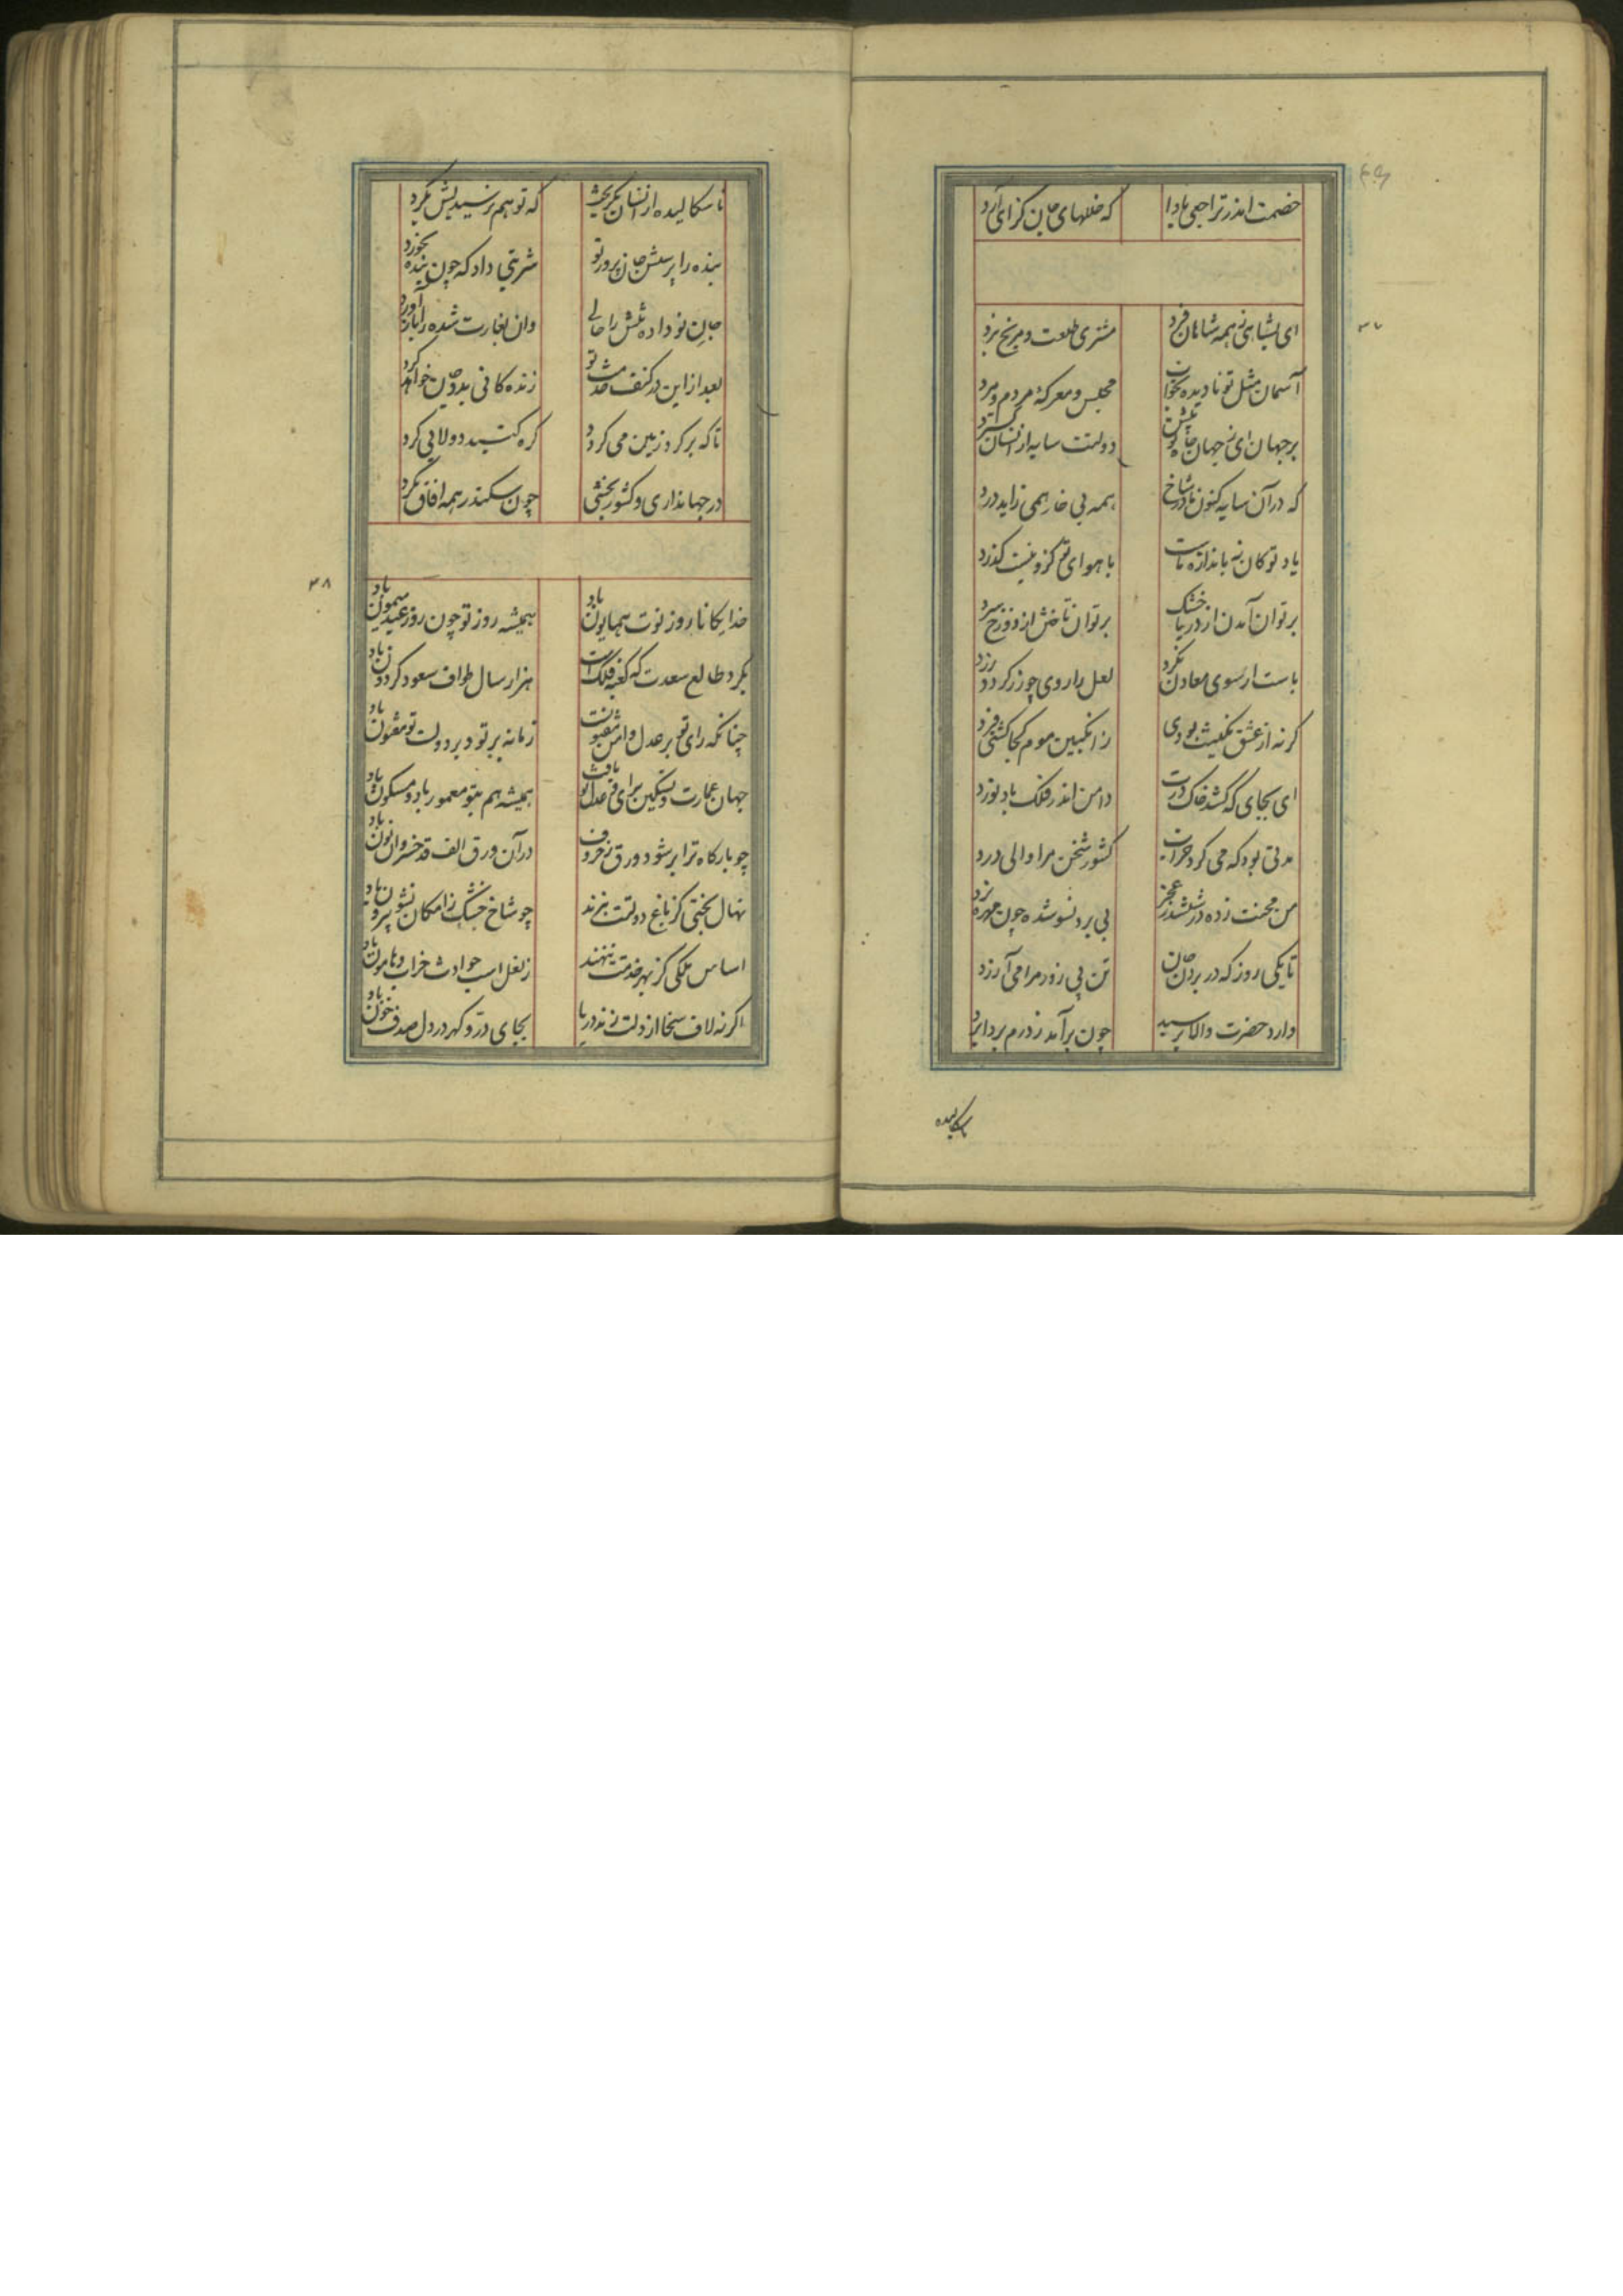 خصمت اندر تراجعی بادا
که خللهای جان گزای آرد
۳۷
ای بشاهی ز همه شاهان فرد
مشتری طلعت و مریخ نبرد
آسمان مثل تو نادیده بخواب
مجلس و معرکه مردم و مرد
بر جهان ای ز جهان جاه تو بیش
دولتت سایه از انسان گسترد
که در آن سایه کنون مادر شاخ
همه بی خار همی زاید درد
یاد تو کان نه باندازه ماست
با هوای تو کزو نیست گذرد
بر توان آمدن از دریا خشک
بر توان تاختن از دوزخ سرد
باست ار سوی معادن نگرد
لعل را روی چو زر گردد زرد
گر نه از عشق نگینت بودی
ز انگبین موم کجا گشتی فرد
ای بجای که کشد خاک درت
دامن اندر فلک باد نورد
مدتی بود که می کرد خراب
کشور شخص مرا والی درد
من محنت زده در ششدر عجز
بی برد نسو شده چون مهره نرد
تا یکی روز که در بردن جان
تن بی زور مرا می آزرد
وارد حضرت والا برسید
چون برآمد ز درم بردابرد
ناسکالیده
ناسکالیده از انسان بگریخت
که تو هم نرسیدیش بگرد
بنده را پرسش جان پرور تو
شربتی داد که چون بنده بخورد
جان نو داده تنش را حالی
وان بغارت شده را باز آورد
بعد از این در کنف خدمت تو
زنده کانی بدو جان خواهد کرد
تا که بر گرد زمین می گردد
کره گنبد دولابی گرد
در جهانداری و کشور بخشی
چون سکندر همه آفاق بگرد
۳۸
خدایگانا روز نوت همایون باد
همیشه روز تو چون روز عید میمون باد
بگرد طالع سعدت که کعبه فلک است
هزار سال طواف سعود گردون باد
چنانکه رای تو بر عدل و امن مفتونست
زمانه بر تو و بر دولت تو مفتون باد
جهان عمارت و تسکین برای و عدل تو یافت
همیشه هم بتو معمور باد و مسکون باد
چو بارگاه ترا بر شود ورق ز حروف
در آن ورق الف قد خسروان نون باد
نهال بختی کز باغ دولتت نبرند
چو شاخ خشک ز امکان نشو بیرون باد
اساس ملکی کز بهر خدمتت ننهند
ز نعل اسب حوادث خراب و هامون باد
اگر نه لاف سخا از دلت زند دریا
بجای در و گهر در دل صدف خون باد